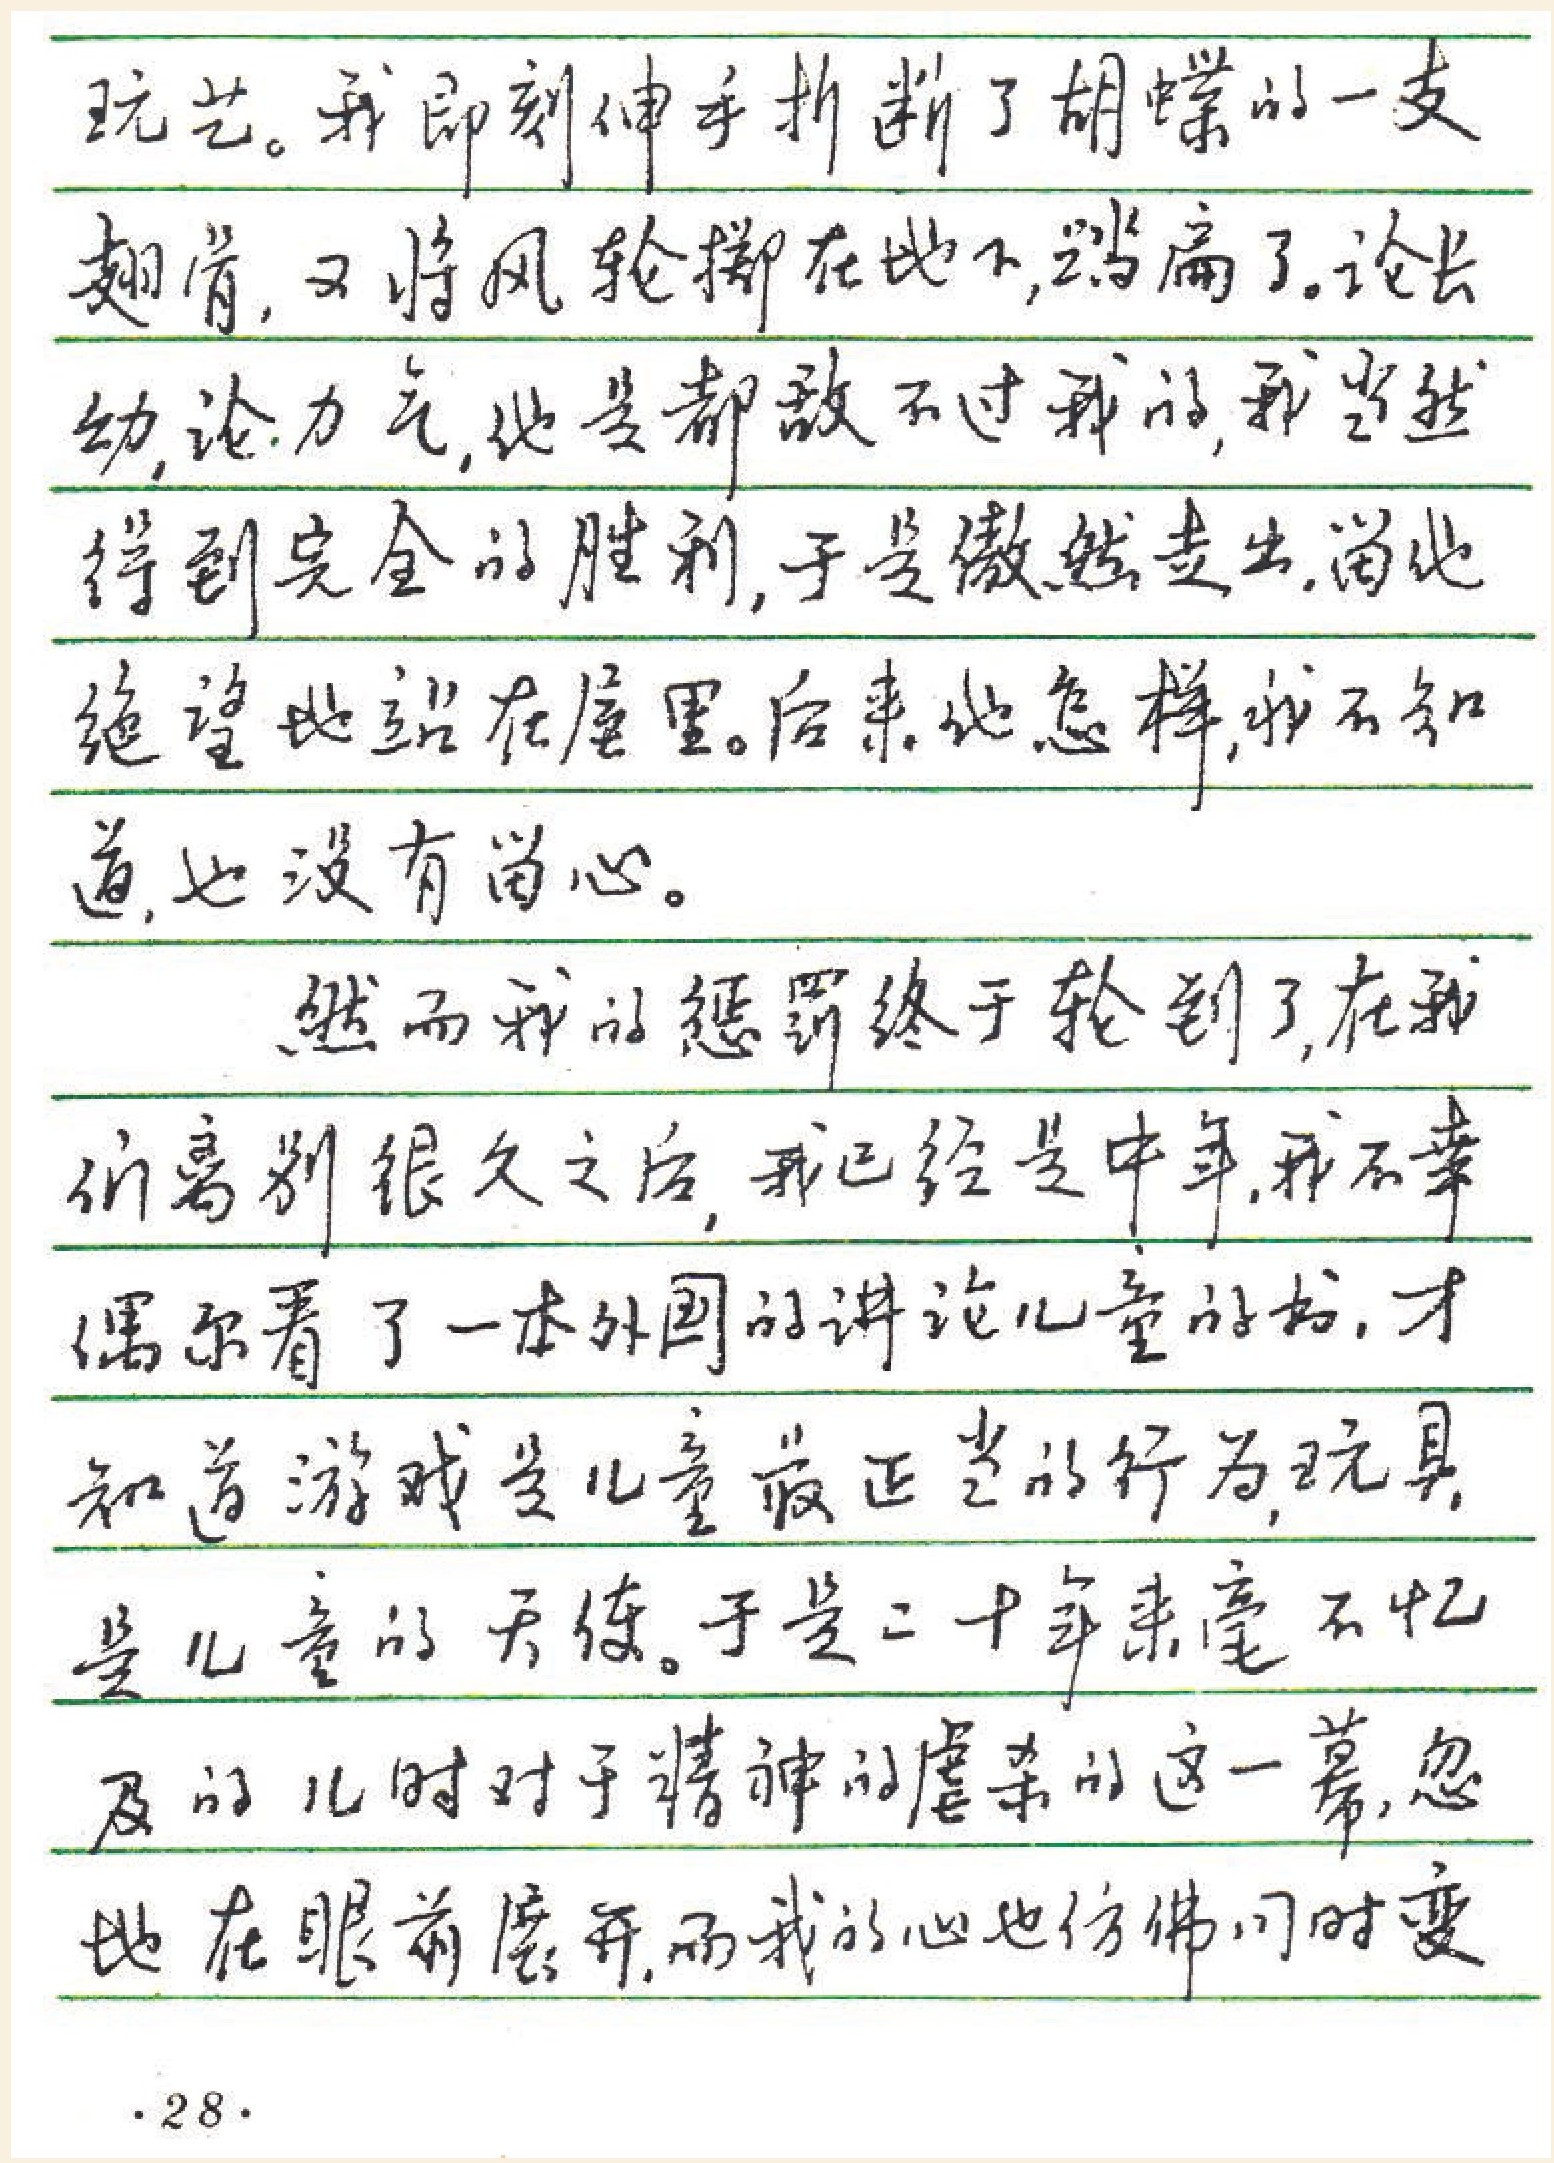 玩艺。我即刻伸手折断了胡蝶的一支
翅骨,又将风轮掷在地下,踏扁了。论长
幼,论力气,他是都敌不过我的,我当然
得到完全的胜利,于是傲然走出,留他
绝望地站在屋里。后来他怎样,我不知
道,也没有留心。
然而我的惩罚终于轮到了,在我
们离别很久之后,我已经是中年,我不幸
偶尔看了一本外国的讲论儿童的书,才
知道游戏是儿童最正当的行为,玩具
是儿童的天使。于是二十年来毫不忆
及的儿时对于精神的虐杀的这一幕,忽
地在眼前展开,而我的心也仿佛同时变
·28·